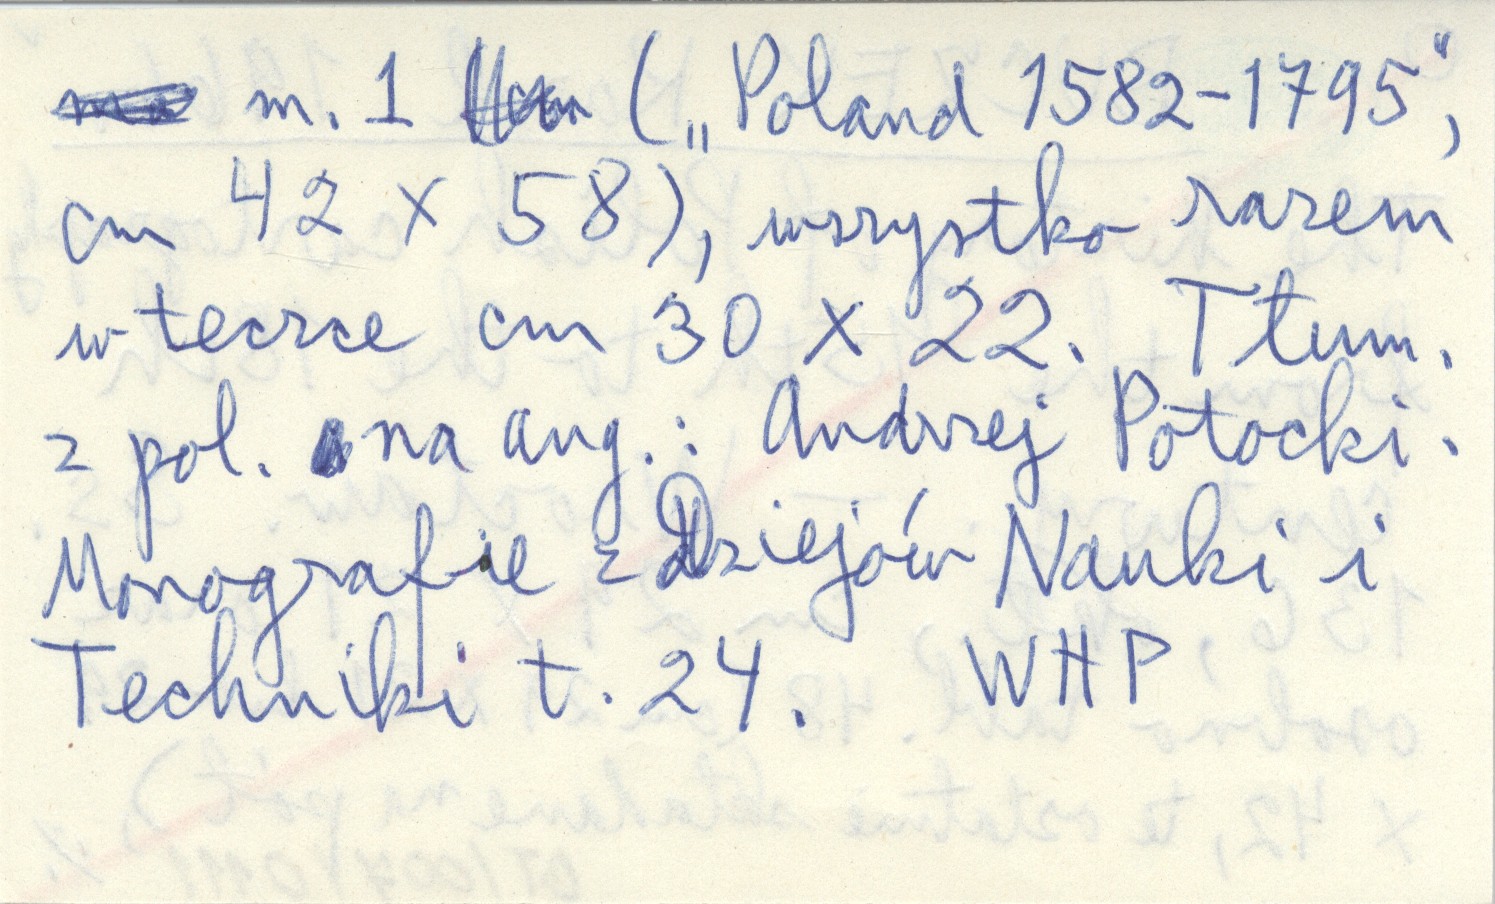 m. 1 („Poland 1582-1795",
cm 42 x 58), wszystko razem
w teczce cm 30 x 22. Tłum.
z pol. na ang.: Andrzej Potocki.
Monografie z Dziejów Nauki i
Techniki t. 24. WHP